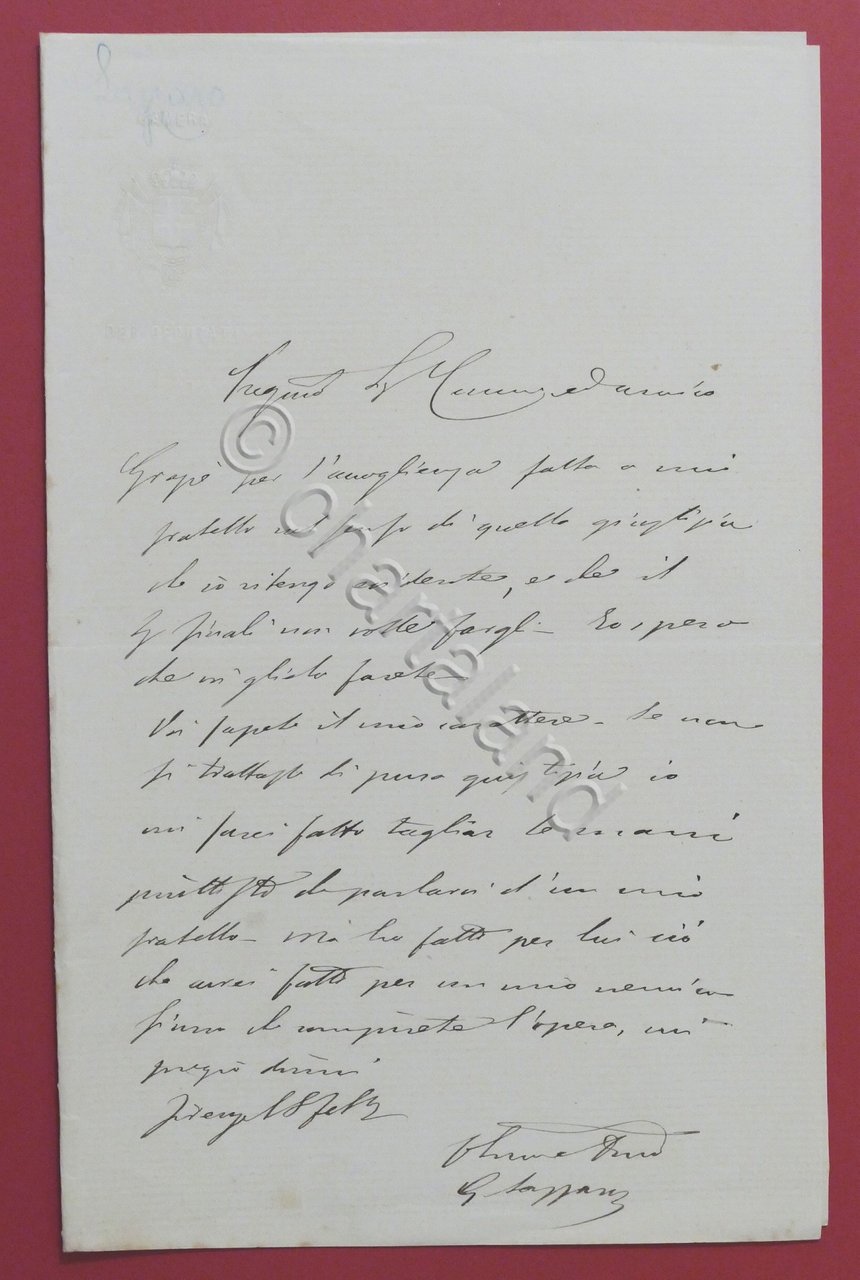 Pregmo Sr Comm. ed amico
Grazie per l'accoglienza fatta a mio
fratello nel senso di quella giustizia
che io ritengo evidente, e che il
Sr non volle fargli - Io spero
che vi gliela farete -
Voi sapete il mio carattere - Se non
si trattasse di pura giustizia io
mi sarei fatto tagliar le mani
piuttosto che parlarvi d'un mio
fratello - Ma ho fatto per lui ciò
che avrei fatto per un mio nemico
Sicuro che compirete l'opera, mi
pregio dirmi
Firenze 18
© chartaland